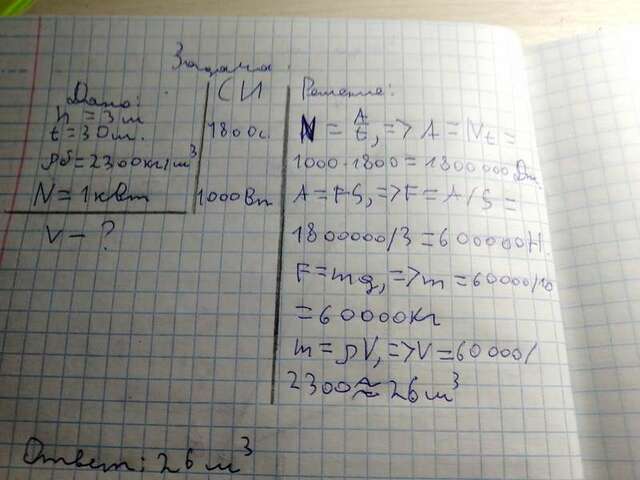 Задача.
Дано:
h = 3 м
t = 30 м.
ρб = 2300 кг/м³
N = 1 квт
V — ?
СИ
1800с.
1000Вт
Решение:
N = A/t, => A = Nt =
1000·1800 = 1800000 Дж.
A = FS, => F = A/S =
1800000/3 = 600000Н.
F = mg, => m = 60000/10
= 60000кг
m = ρV, => V = 60000/
2300 ≈ 26 м³
Ответ: 26 м³